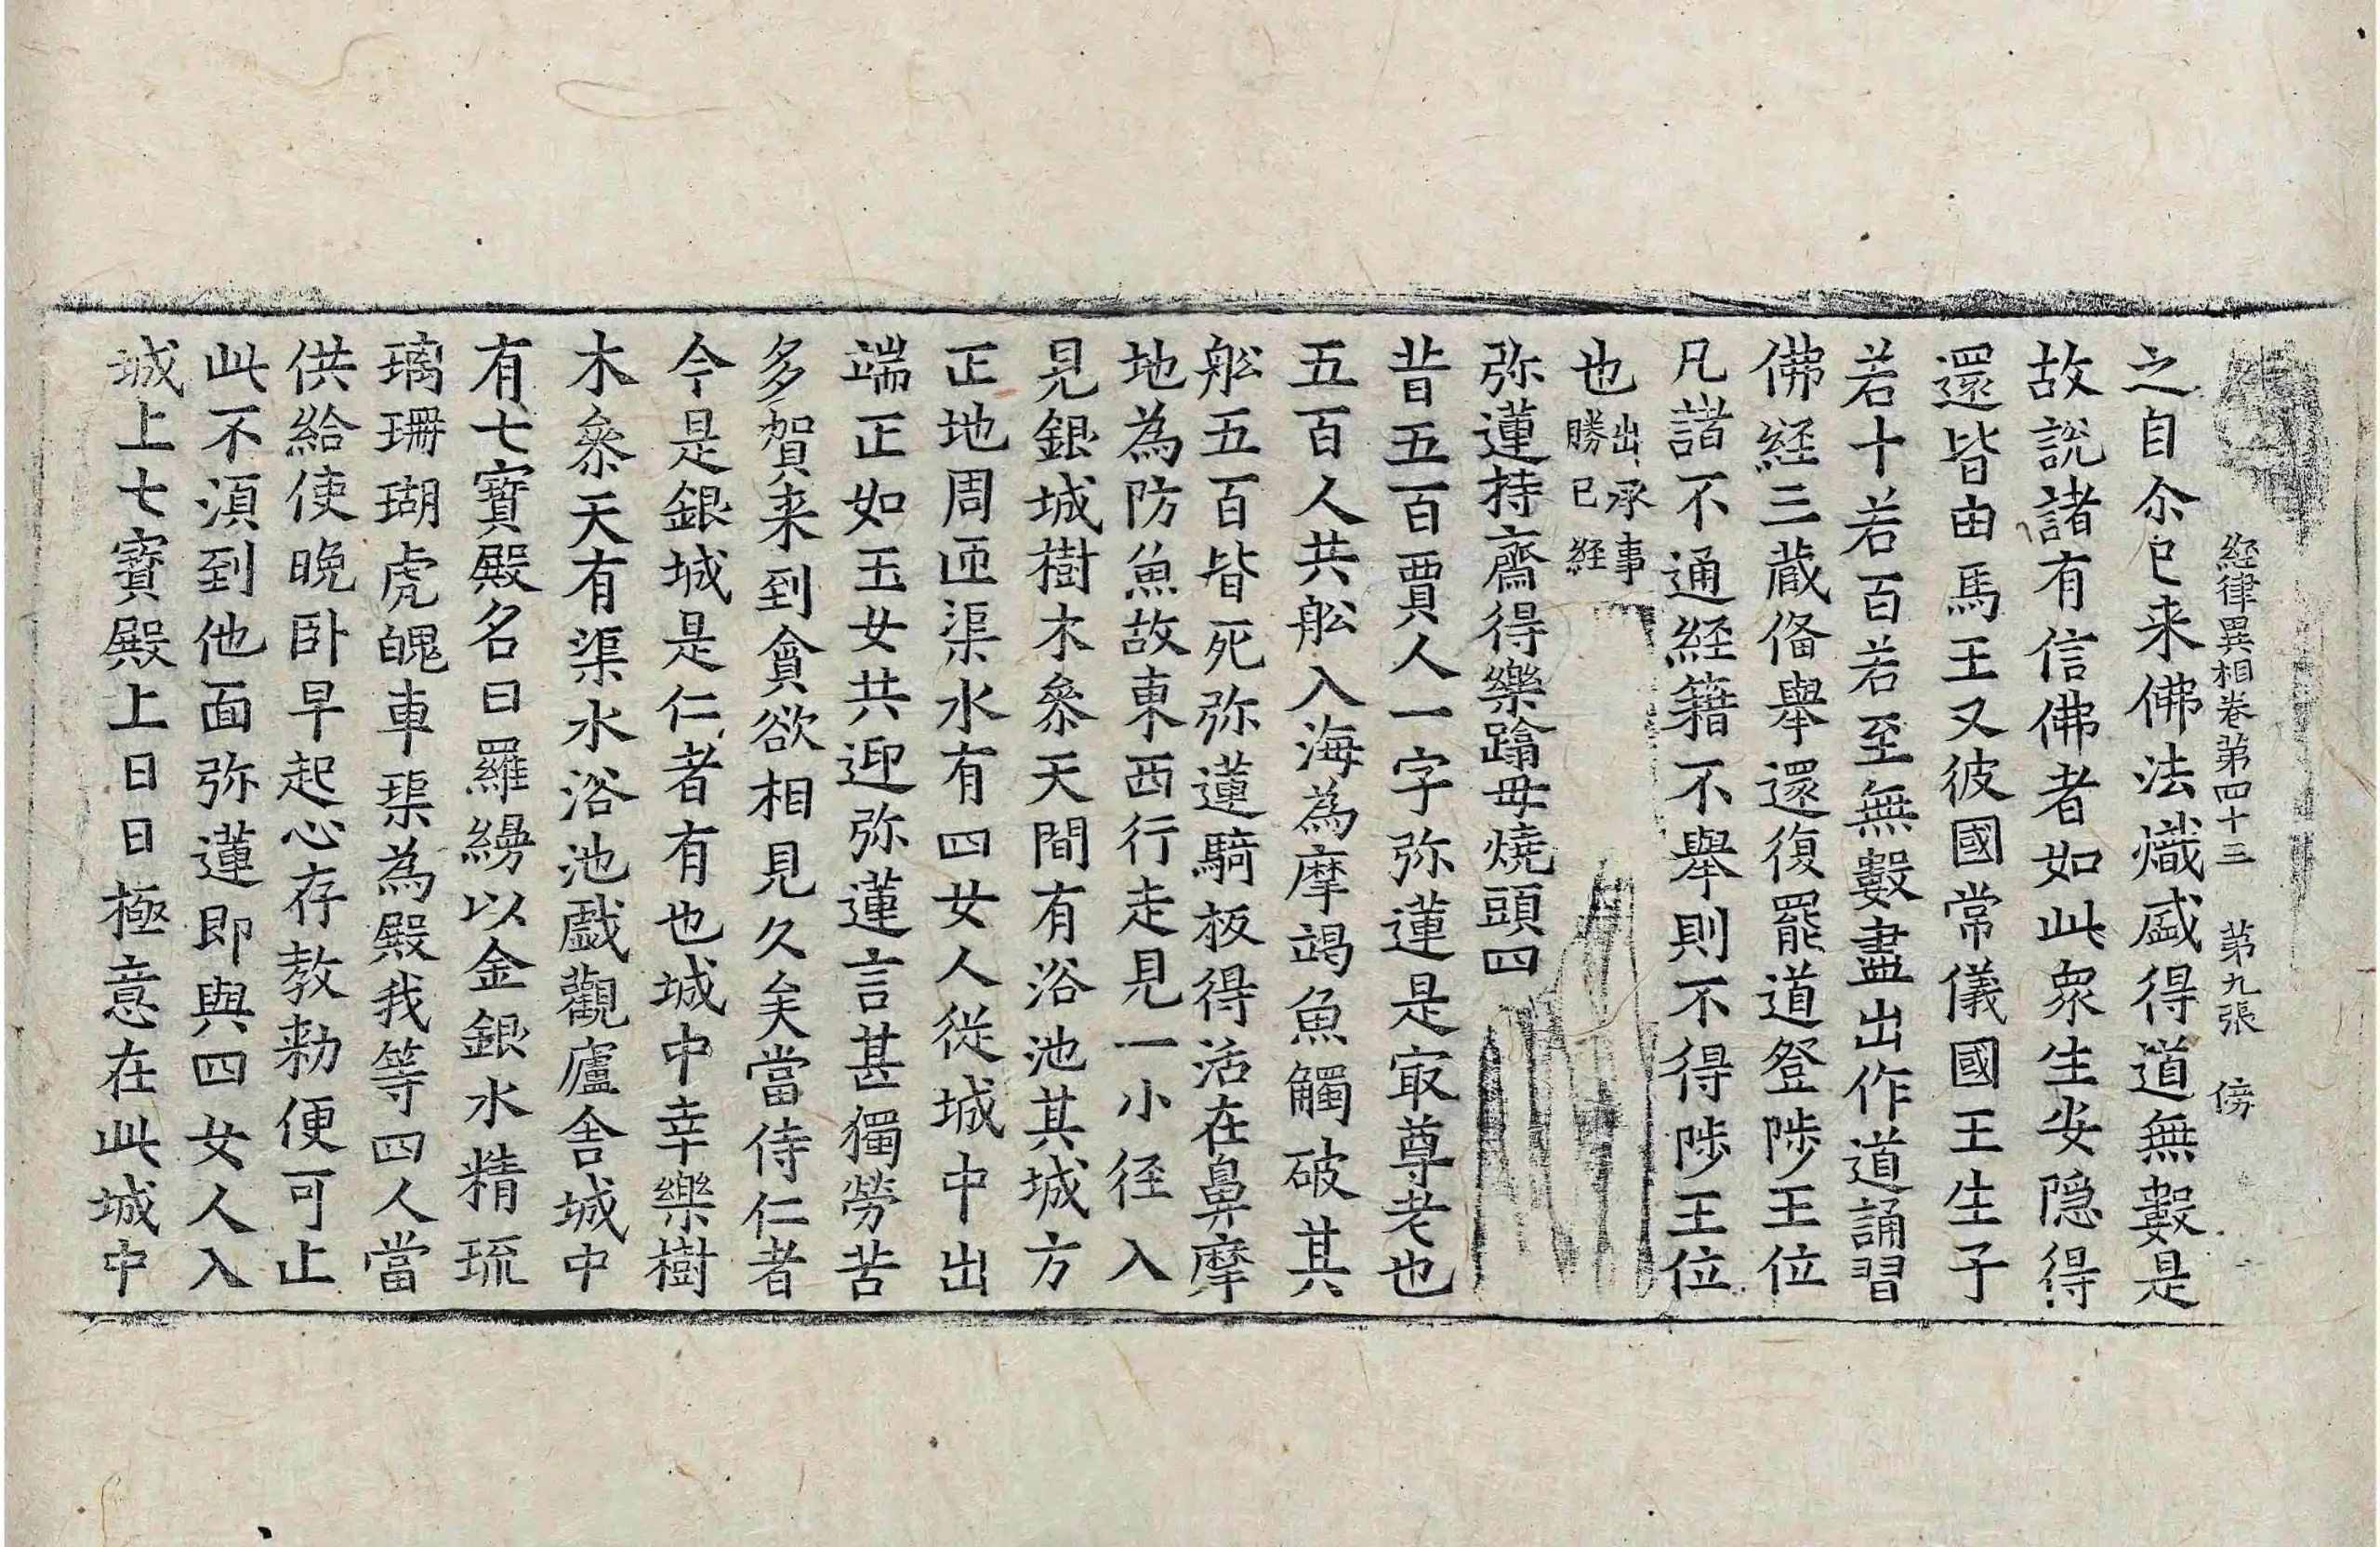 経律異相卷第四十三　第九張　傍
之自尒已来佛法熾盛得道無數是
故說諸有信佛者如此眾生安隠得
還皆由馬王又彼國常儀國王生子
若十若百若至無數盡出作道誦習
佛経三蔵俻舉還復罷道登陟王位
凡諸不通経籍不舉則不得陟王位
也出承事勝已経
弥蓮持齋得樂蹹母燒頭四
昔五百賈人一字弥蓮是㝡尊老也
五百人共舩入海為摩竭魚觸破其
舩五百皆死弥蓮騎板得活在鼻摩
地為防魚故東西行走見一小径入
見銀城樹木叅天間有浴池其城方
正地周匝渠水有四女人従城中出
端正如玉女共迎弥蓮言甚獨勞苦
多賀来到貪欲相見久矣當侍仁者
今是銀城是仁者有也城中幸樂樹
木叅天有渠水浴池戲觀廬舍城中
有七寶殿名曰羅縵以金銀水精琉
璃珊瑚虎魄車璖為殿我等四人當
供給使晚卧早起心存教勑便可止
此不湏到他面弥蓮即與四女人入
城上七寶殿上日日極意在此城中